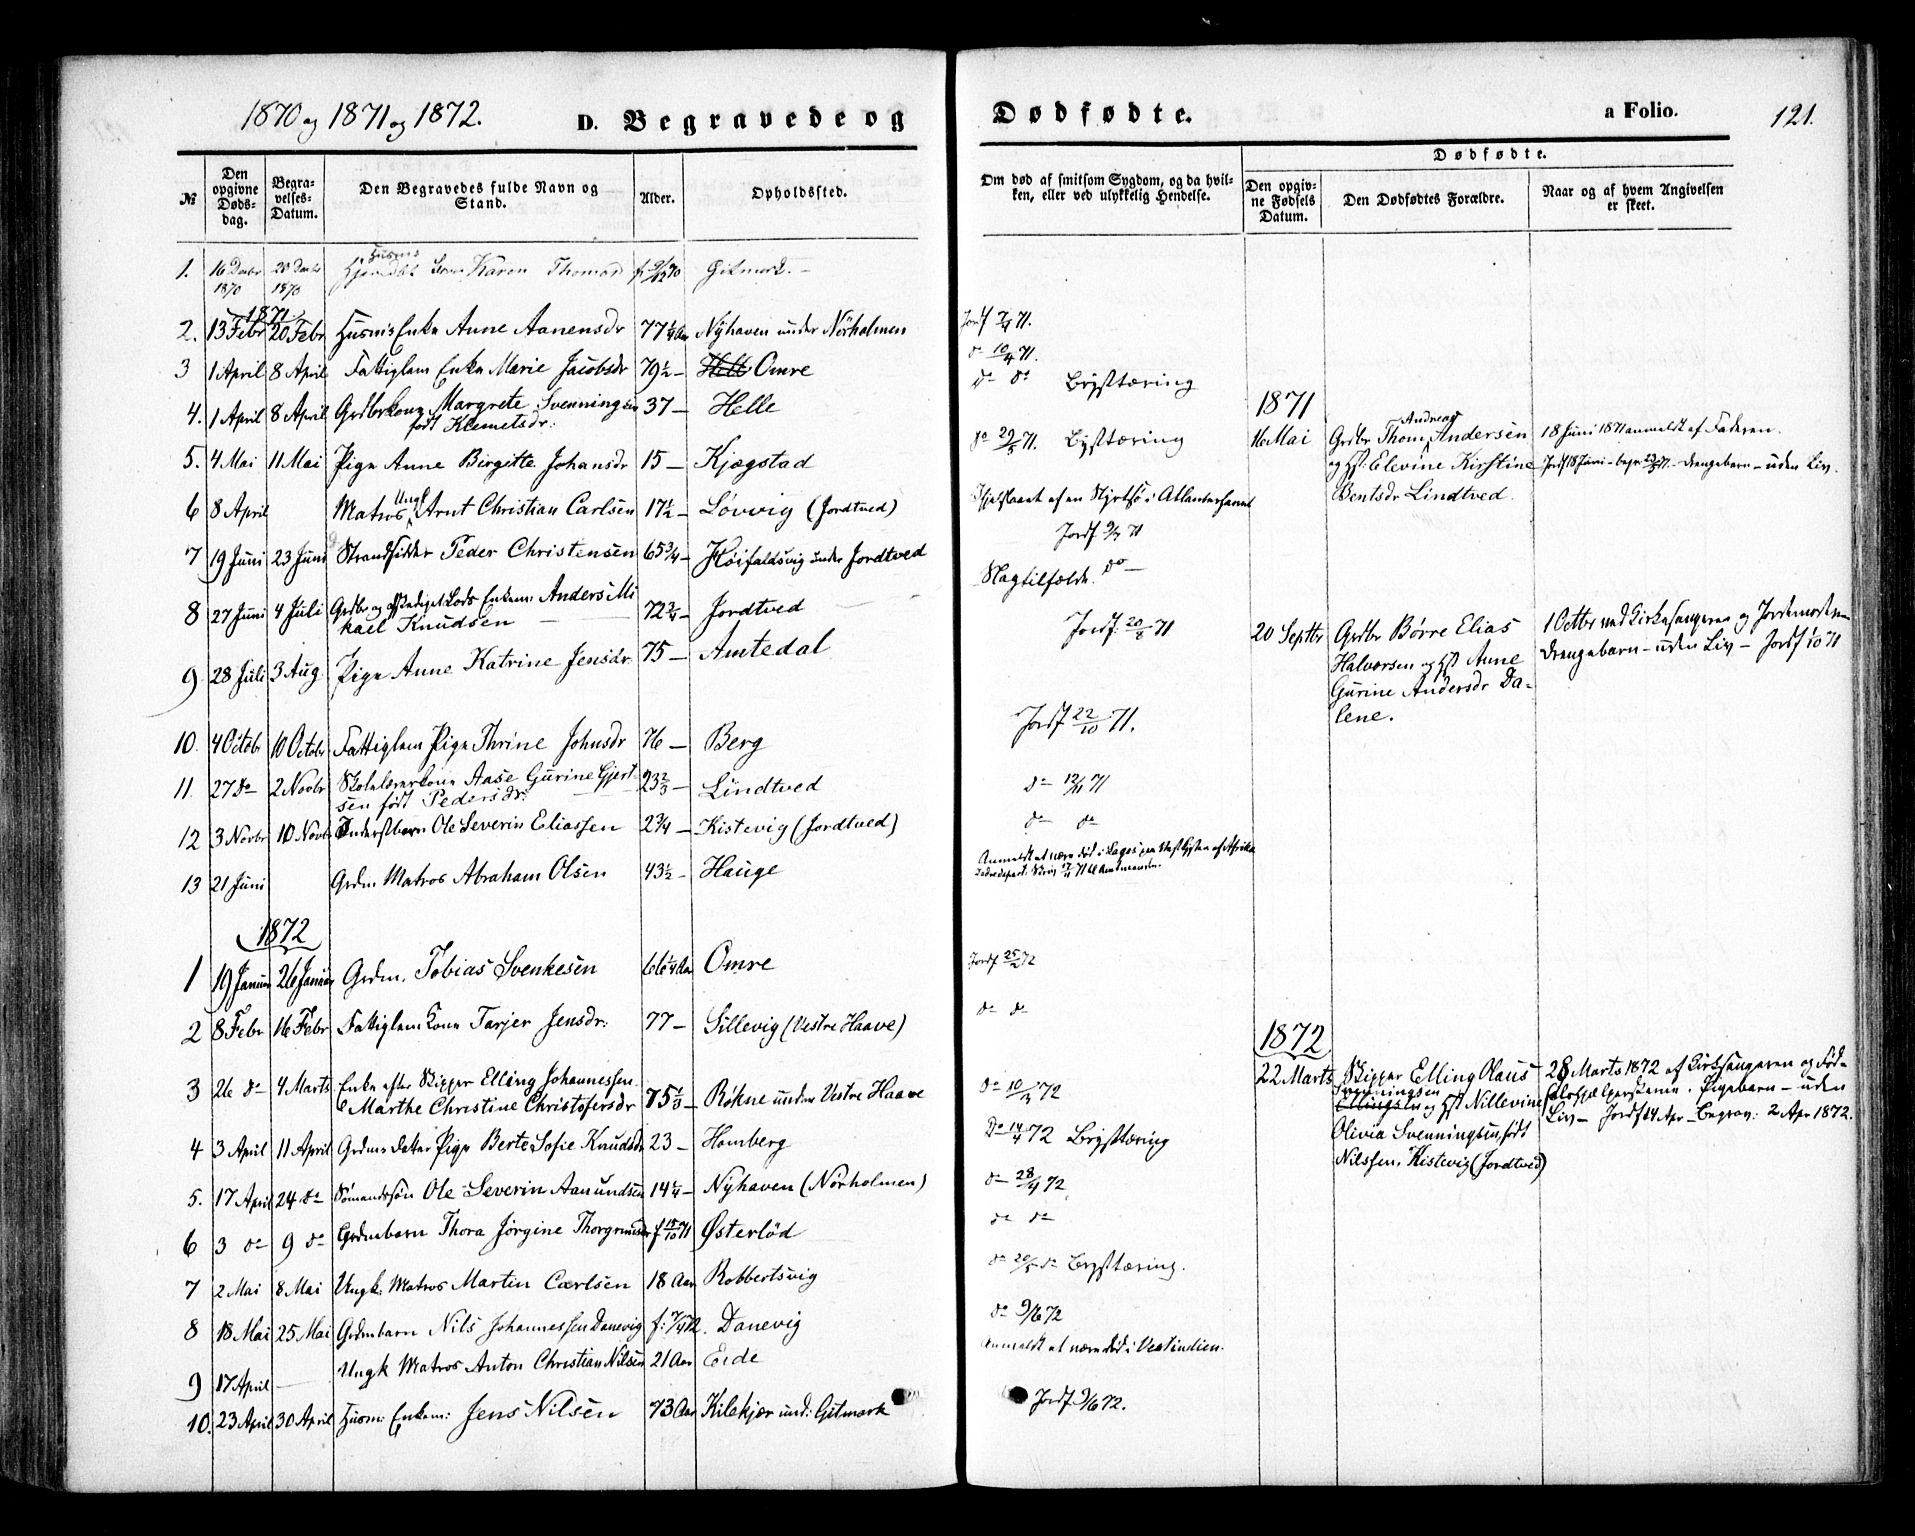 1870 og 1871 og 1872.
D. Begravede og Dødfødte.
a Folio. 121.
№
Den opgivne Dødsdag.
Begravelses-Datum.
Den Begravedes fulde Navn og Stand.
Alder.
Opholdssted.
Om død af smitsom Sygdom, og da hvilken, eller ved ulykkelig Hendelse.
Dødfødte.
Den opgivne Fødsels Datum.
Den Dødfødtes Forældre.
Naar og af hvem Angivelsen er skeet.
1. 16 Decbr 1870 20 Decbr 1870 Karen Gitmark.
1871
2. 13 Febr 20 Febr Husm: Enke Anne Aanensdr 77 1/4 Aar Nÿhaven under Nörholmen Jordf 71.
3 1 April 8 April Fattiglem Enke Marie Jacobsdr 79 1/2 – Helle Omre do 10/4 71.
4. 1 April 8 April Grdbrkone Margrete Svenningsen 37 – Helle do do Brÿsttæring
født Klemetsdr:
5. 4 Mai 11 Mai Pige Anne Birgitte Johansdr 15 – Kjægstad do 29/5 71. Brÿsttæring
6 8 April Matros Ungk Arnt Christian Carlsen 17 1/2 – Løvvig (Jordtved) Ihjelslaaet af en Styrtsø i Atlanterhavet
7 19 Juni 23 Juni Strandsidder Peder Christensen 65 3/4 – Høifaldsvig under Jordtved Jordf 9/7 71
8 27 Juni 4 Juli Grdbr og afskediget Lods Enkem: Anders Mikael Knudsen 72 3/4 – Jordtved Slagtilfælde. do –
9 28 Juli 3 Aug. Pige Anne Katrine Jensdr 75 – Amtedal Jordf. 20/8 71
10. 4 Octobr 10 Octobr Fattiglem Pige Thrine Johnsdr 76 – Berg Jordf 22/10 71.
11. 27 do 2 Novbr Skolelærerkone Aase Gurine Gjertsen født Pedersdr: 23 2/3 – Lindtved do 12/11 71
12 3 Novbr 10 Novbr Inderstbarn Ole Severin Eliassen 2 3/4 – Kistevig (Jordtved) do do
13 21 Juni Grdm Matros Abraham Olsen 43 1/2 – Hauge Anmeldt at være død i Lagos paa Vestkysten af Afrika
1871
16 Mai Grdbr Thom Andreas Andersen
og Hst: Elevine Kirstine
Bentsdr Lindtved.
18 Juni 1871 anmeldt af Faderen.
Jordf 18 Juni – drengebarn – uden Liv.
20 Septbr Grdbr Børre Elias
Halvorsen og Hst Anne
Gurine Andersdr Dalene.
1 Octbr ved Kirkesangeren og Jordemoderen
drengebarn – uden Liv – Jordf 1/10 71
1872
1 19 Januar 26 Januar Grdm. Tobias Svenkesen 66 1/4 Aar Omre Jordf 25/2 72
2 8 Febr 16 Febr Fattiglem Kone Tarjer Jensdr: 77 – Sillevig (Vestre Haave) do do
3 26 do 4 Marts Enke efter Skipper Elling Johannessen
Marthe Christine Christofersdr 75 1/3 – Røkne under Vestre Haave do 10/3 72
4 3 April 11 April Grdms datter Pige Berte Sofie Knudsdr 23 – Homberg Do 14/4 72 Brÿsttæring
5. 17 April 24 do Sömandssön Ole Severin Aanundsen 14 1/4 – Nÿhaven (Nörholmen) do 28/4 72
6 3 do 9 do Grdmebarn Thora Jørgine Thorgrimsdr f 15/10 71 Østerlöd do do
7 2 Mai 8 Mai Ungk: Matros Martin Carlsen 18 Aar Robbertsvig do 20/5 do Brÿsttæring.
8 18 Mai 25 Mai Grdmbarn Nils Johannessen Danevig Danevig do 9/6 72
9 17 April — Ungk Matros Anton Christian Nilsen 21 Aar Eide Anmeldt at være död i Vestindien.
10. 23 April 30 April Husm: Enkem: Jens Nilsen 73 Aar Kilekjær und: Gitmark Jordf 9/6 72.
1872
22 Marts Skipper Elling Olaus
Svenningsen
Ellingsen og Hst Nillevine
Olivia Svenningsen, født
Nilssen, Kistevig (Jordtved)
28 Marts 1872 af Kirkesangeren og Föd-
selshjælpersken. Pigebarn – uden
Liv – Jordf 14 Apr – Begrav: 2 Apr 1872.